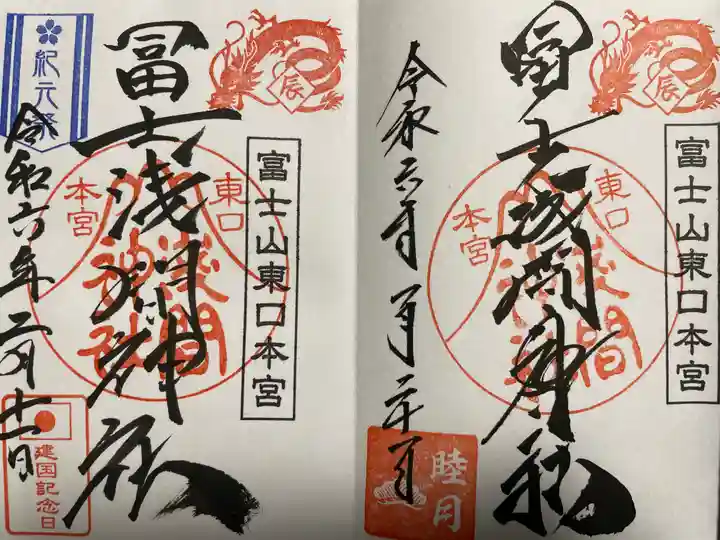 辰
富士山東口本宮
冨士浅間神社
東口
本宮
浅間
神社
紀元祭
令和六年二月十一日
建国記念日
辰
富士山東口本宮
冨士浅間神社
東口
本宮
浅間
令和六年
睦月